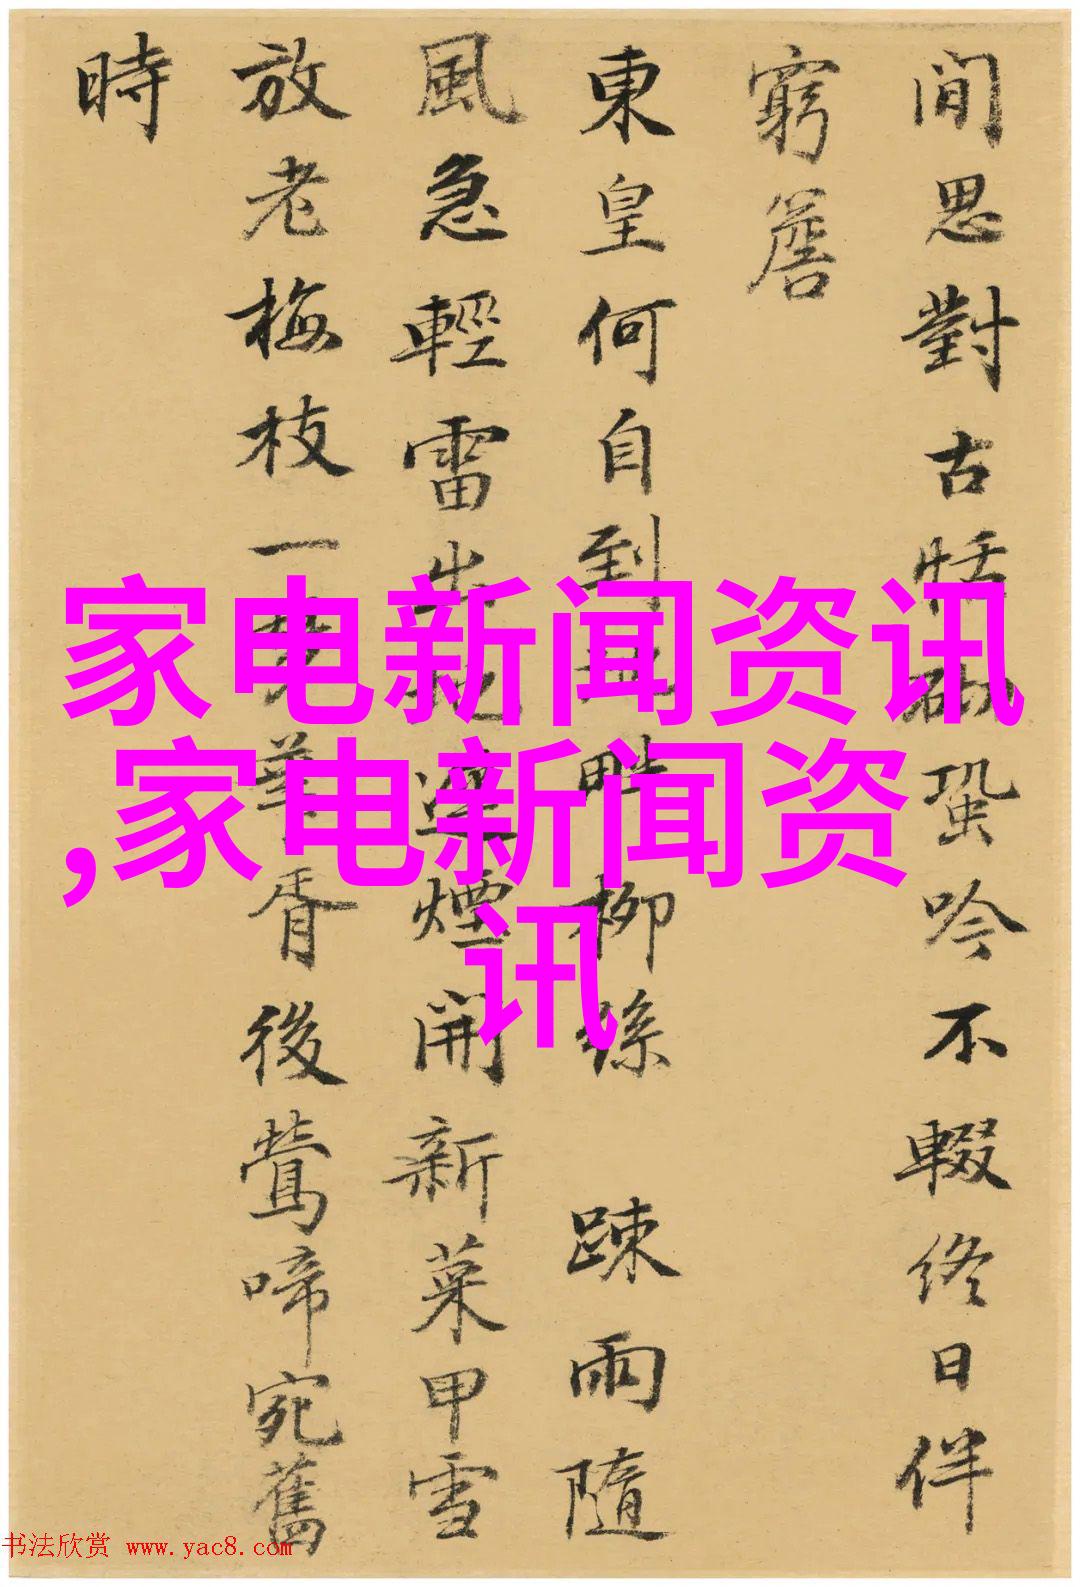 閒思對古恬砌蛩吟不輟終日伴
窮簷
東皇何自到畔柳絲 踈雨隨
風急輕雷出地遲煙開新菜甲雪
放老梅枝一華胥後鶯啼宛舊
時
家电新闻资讯
,家电新闻资
讯
书法欣赏 www.yac8.com